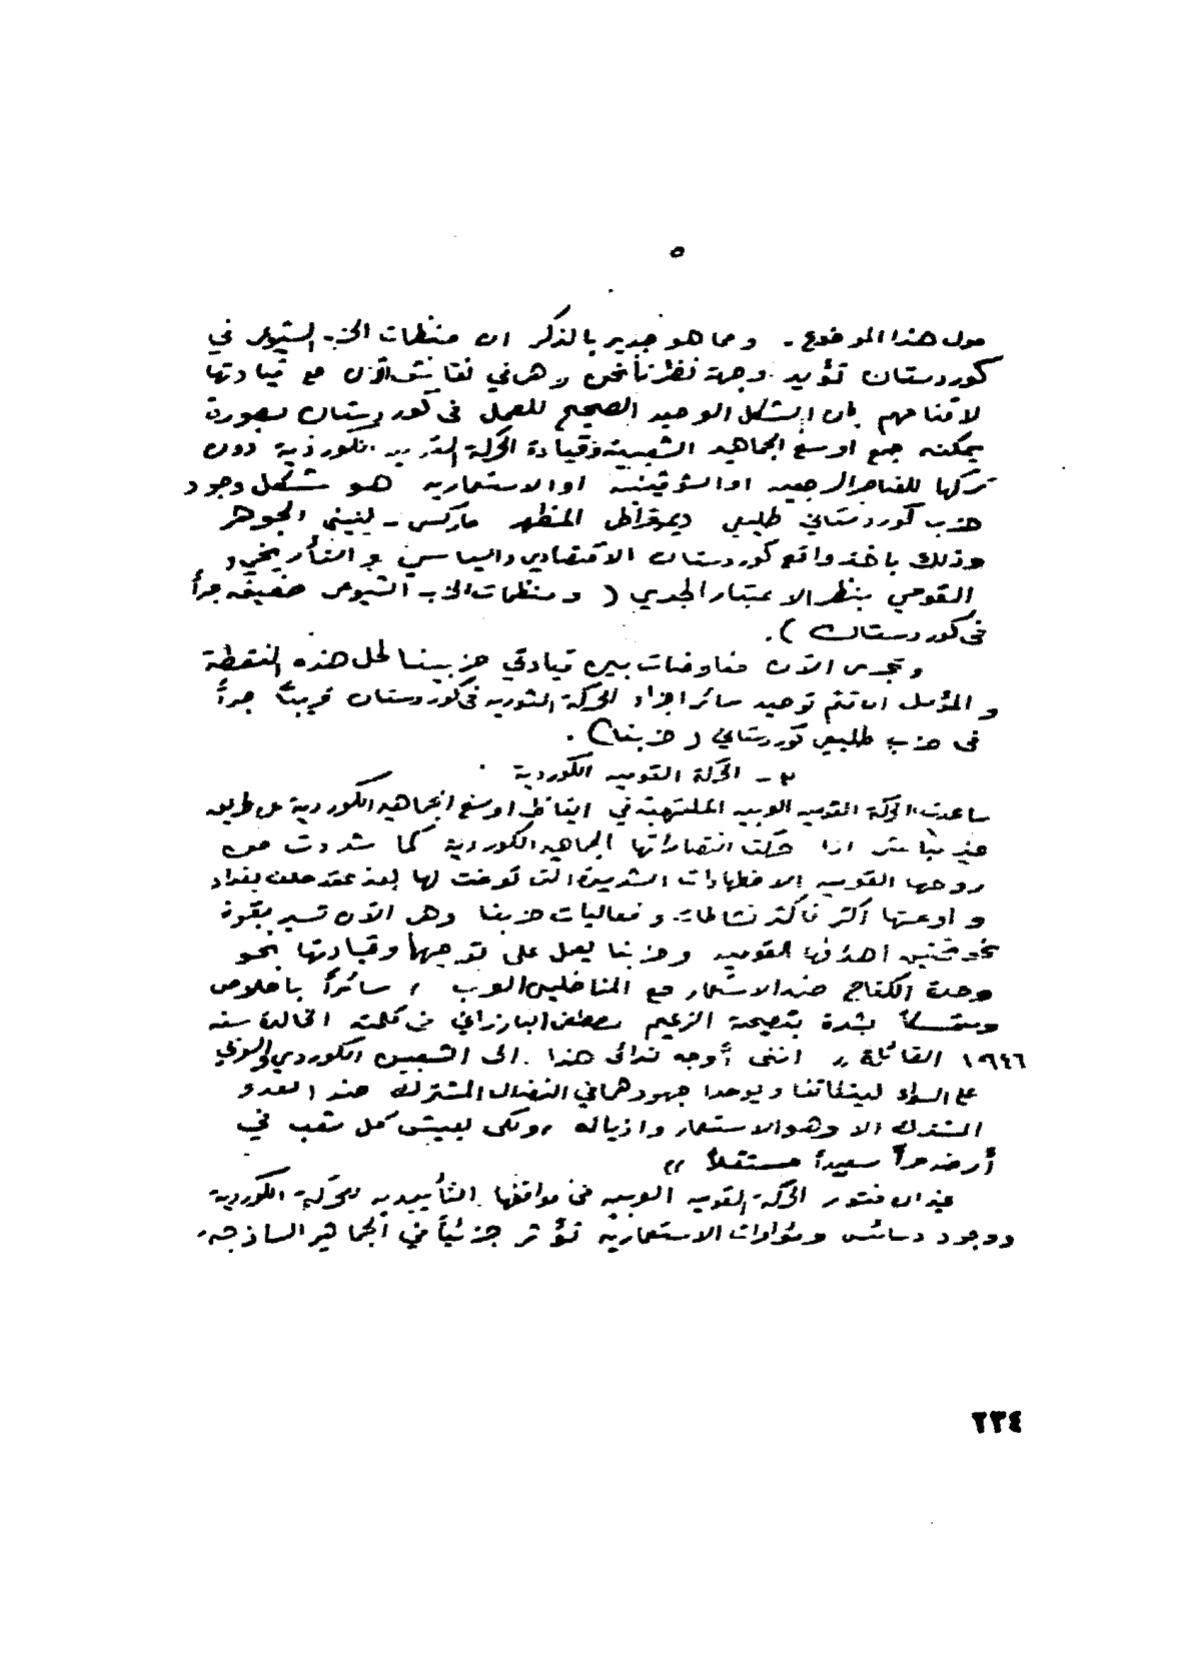 ٥
حول هذا الموضوع . ومما هو جدير بالذكر ان منظمات الحزب الشيوعي في
كوردستان تؤيد وجهة نظرنا نحن وهي في نقاش الآن مع قيادتها
لاقناعهم بان الشكل الوحيد الصحيح للعمل في كوردستان بصورة
يمكنه جمع اوسع الجماهير الشعبية وقيادة الحركة القومية الكوردية دون
تركها للعناصر الرجعية او الشوفينية او الاستعمارية هو شكل وجود
حزب كوردستاني طليعي ديمقراطي المظهر ماركسي - لينيني الجوهر
وذلك باخذ واقع كوردستان الاقتصادي والسياسي والتأريخي و
القومي بنظر الاعتبار الجدي ( ومنظمات الحزب الشيوعي ضعيفة جداً
في كوردستان ) .
وتجري الآن مفاوضات بين قيادتي حزبينا لحل هذه النقطة
و المؤمل ان تتم توحيد سائر اجزاء الحركة الثورية في كوردستان قريباً جداً
في حزب طليعي كوردستاني ( حزبنا ) .
٢ - الحركة القومية الكوردية .
ساعدت الحركة القومية العربية الملتهبة في ايقاظ اوسع الجماهير الكوردية عن طريق
غير مباشر اذا حركت انتصاراتها الجماهير الكوردية كما شددت من
روحها القومية الاضطهادات الشديدة التي تعرضت لها بعد عقد حلف بغداد
و اوعتها اكثر فاكثر نشاطات وفعاليات حزبنا وهي الآن تسير بقوة
نحو اهدافها القومية وحزبنا يعمل على توجيهها وقيادتها نحو
وحدة الكفاح ضد الاستعمار مع المناضلين العرب ، سائراً باخلاص
ومتمسكاً بشدة بنصيحة الزعيم مصطفى البارزاني في كلمته الخالدة سنة
١٩٤٦ القائلة ,, انني أوجه ندائي هذا الى الشعبين الكوردي والعربي
على السواء ليتكاتفا ويوحدا جهودهما في النضال المشترك ضد العدو
المشترك الا وهو الاستعمار واذياله ولكي يعيش كل شعب في
أرضه حراً سعيداً مستقلاً ,,
غير ان فتور الحركة القومية العربية في مواقفها التأييدية للحركة الكوردية
ووجود دسائس ومؤامرات الاستعمارية تؤثر جزئياً في الجماهير الساذجة .
٢٣٤